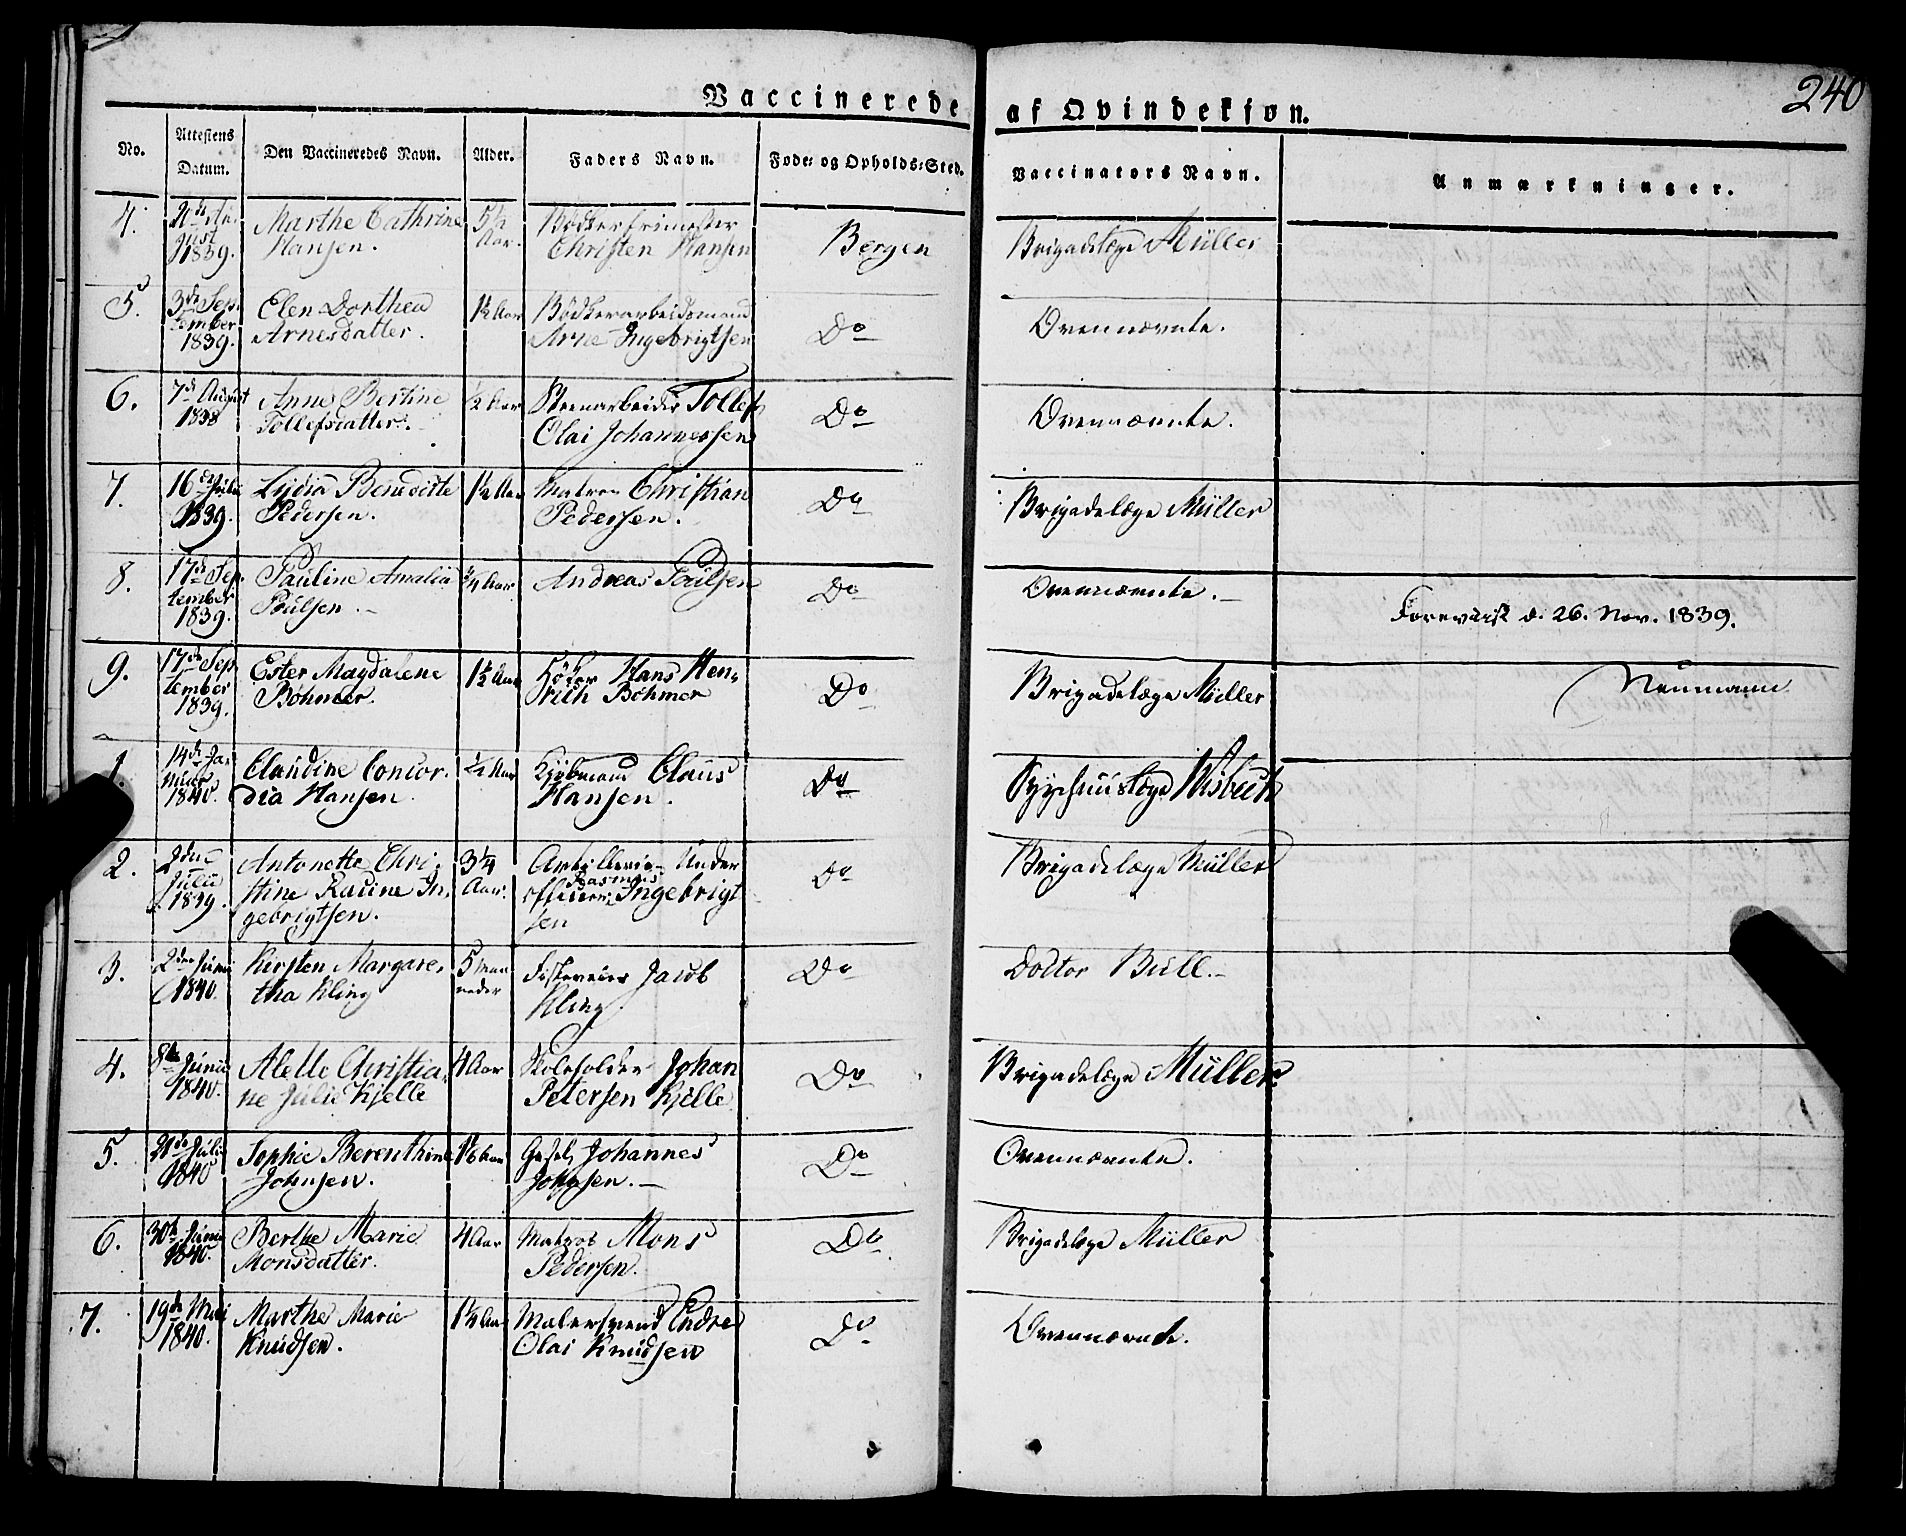 240
Vaccinerede af Qvindekjøn.
No. Attestens Datum. Den Vaccineredes Navn. Alder. Faders Navn. Føde- og Opholds-Sted. Vaccinators Navn. Anmærkninger.
4. 20de August 1839. Marthe Cathrine Hansen. 5½ Aar. Bødkerfrimester Christen Hansen Bergen Brigadelæge Müller
5. 3de September 1839. Elen Dorthea Arnesdatter. 1½ Aar Bødkerarbeidsmand Arne Ingebrigtsen Do Ovennævnte.
6. 7de August 1838 Anne Bertine Tollefsdatter. ½ Aar Steenarbeider Tollef Olai Johannessen Do Ovennævnte.
7. 16de 1839. Lydia Benedicte Pedersen. 1½ Aar Matros Christian Pedersen. Do Brigadelæge Müller
8. 17de September 1839. Pauline Amalia Poulsen. ¼ Aar. Andreas Poulsen Do Ovennævnte.
Forevist d. 26. Nov. 1839.
Neumann
9. 17de September 1839. Ester Magdalene Böhmer. 1½ Aar Hans Henrich Böhmer Do Brigadelæge Müller
1. 14de Januar 1840. Claudine Concordia Hansen. ½ Aar Kjøbmand Claus Hansen. Do Wisbech
2. 2den 1839. Antonette Christine Rasine Ingebrigtsen. 3¼ Aar. Artillerie-Underofficeer Rasmus Ingebrigtsen Do Brigadelæge Müller
3. 2den Juni 1840. Kirsten Margaretha Kling 5 Maaneder Jacob Kling. Do Doctor Bull.
4. 8de Junii 1840. Alette Christiane Julie Kjelle 4 Aar Skoleholder Johan Petersen Kjelle Do Brigadelæge Müller.
5. 21de Juli 1840 Sophie Berenthine Johnsen. Aar Johannes Johnsen. Do Ovennævnte.
6. 30te Juni 1840. Berthe Marie Monsdatter. 4 Aar Matros Mons Pedersen. Do Brigadelæge Müller
7. 19de Mai 1840. Marthe Marie Knudsen. 1¼ Aar Malersvend Endre Olai Knudsen Do Ovennævnte.